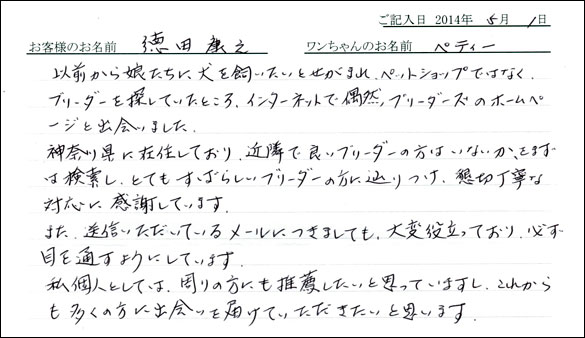 ご記入日 2014年 5月 1日
お客様のお名前 徳田 康之 ワンちゃんのお名前 ペティー
以前から娘たちに犬を飼いたいとせがまれ、ペットショップではなく、
ブリーダーを探していたところ、インターネットで偶然、ブリーダーズのホームペ
ージと出会いました。
神奈川県に在住しており、近隣で良いブリーダーの方はいないか、まず
は検索し、とてもすばらしいブリーダーの方に辿りつけ、懇切丁寧な
対応に感謝しています。
また、送信いただいているメールにつきましても、大変役立っており、必ず
目を通すようにしています。
私個人としては、周りの方にも推薦したいと思っていますし、これから
も多くの方に出会いを届けていただきたいと思います。